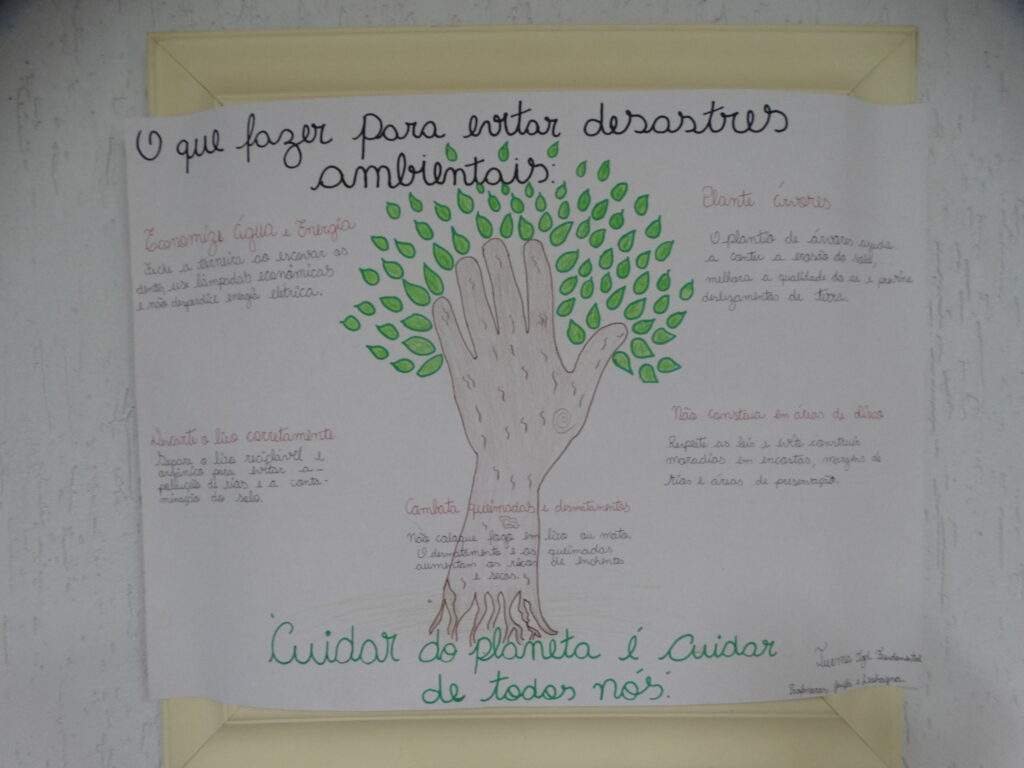 O que fazer para evitar desastres
ambientais:
Economize Água e Energia
Feche a torneira ao escovar os
dentes, use lâmpadas econômicas
e não desperdice energia elétrica.
Plante Árvores
O plantio de árvores ajuda
a conter a erosão do solo,
melhora a qualidade do ar e previne
deslizamentos de terra.
Descarte o lixo corretamente
Separe o lixo reciclável e
orgânico para evitar a
poluição de rios e a conta-
minação do solo.
Não construa em áreas de disco
Respeite as leis e evite construir
moradias em encostas, margens de
rios e áreas de preservação.
Combata queimadas e desmatamentos
Não coloque fogo em lixo ou mato.
O desmatamento e as queimadas
aumentam os riscos de enchentes
e secas.
Cuidar do planeta é cuidar
de todos nós.
Turma Fundamental
Professoras e